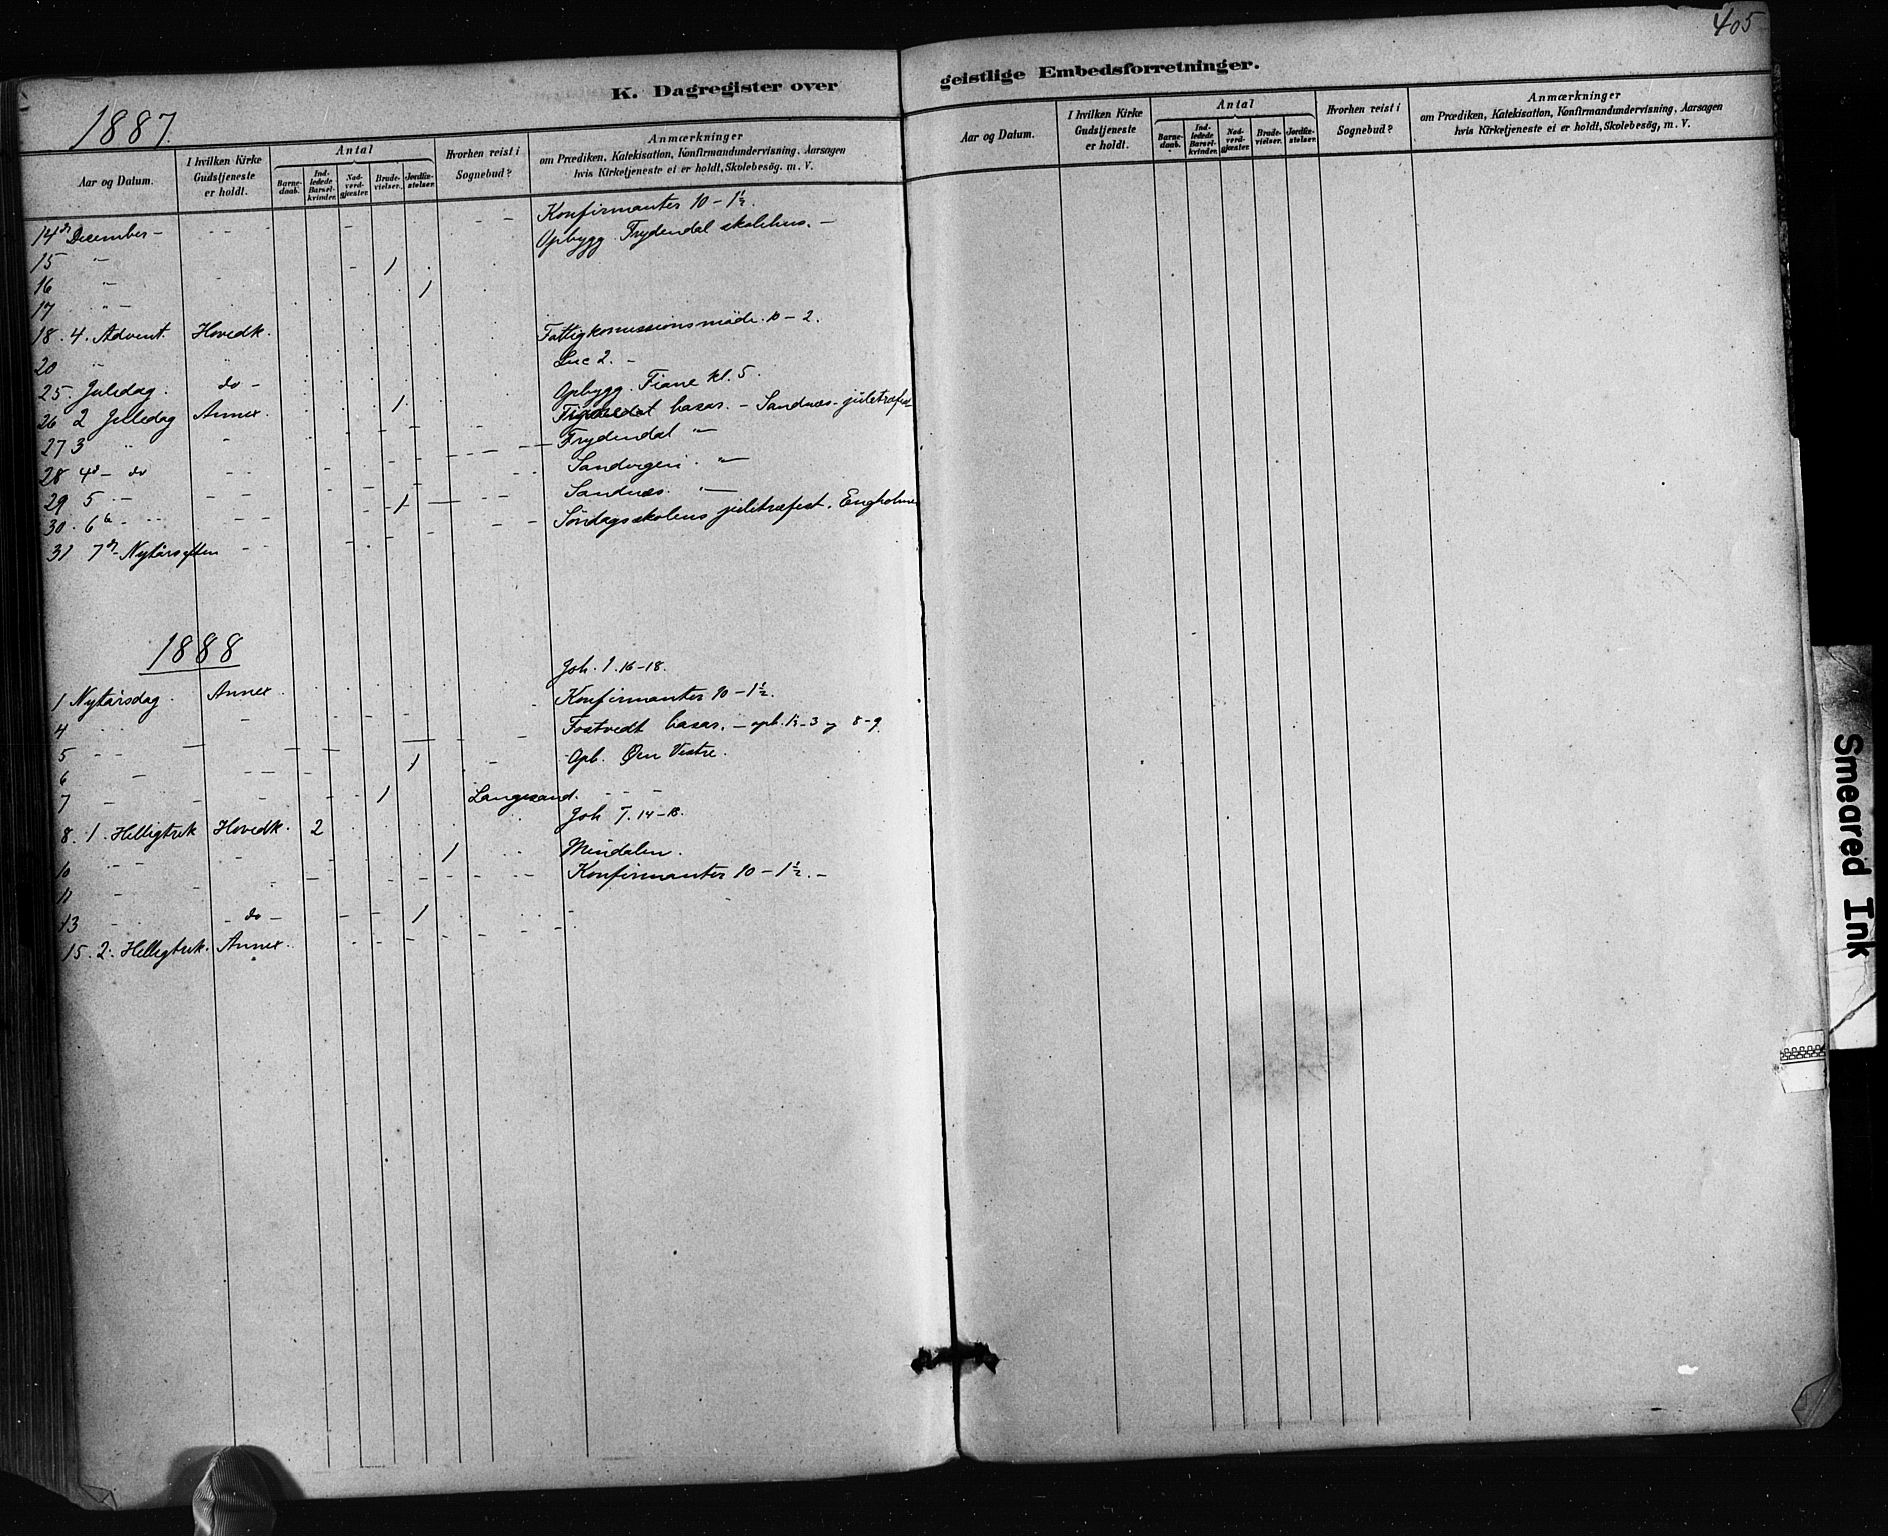 405
K. Dagregister over
geistlige Embedsforretninger.
1887.
Aar og Datum. I hvilken Kirke Gudstjeneste er holdt. Antal Barnedaab. Indledede Barselkvinder. Nadverdgjæster. Brudevielser. Jordfæstelser. Hvorhen reist i Sognebud? Anmærkninger om Prædiken, Katekisation, Konfirmandundervisning, Aarsagen hvis Kirketjeneste ei er holdt, Skolebesög, m. V.
Aar og Datum. I hvilken Kirke Gudstjeneste er holdt. Antal Barnedaab. Indledede Barselkvinder. Nadverdgjæster. Brudevielser. Jordfæstelser. Hvorhen reist i Sognebud? Anmærkninger om Prædiken, Katekisation, Konfirmandundervisning, Aarsagen hvis Kirketjeneste ei er holdt, Skolebesög, m. V.
14de December - Konfirmanter 10 - 1½.
15 " - Opbygg. Frydendal skolehus. -
16 " 1
17 " - 1
18. 4. Advent. Hovedk.
20 " Fattigkomissionsmöde 10 - 2.
25. Juledag. do - Luc 2. -
26 2 Juledag Annex. Opbygg. Fiane kl. 5.
27 3 " 1 basar. - Sandnæs - juletræfest
28 4de - do Frydendal " -
29 5 " - Sandvigen. " -
30. 6te - 1 Sandnæs. " -
31 7de - Nytårsaften Söndagsskolens juletræfest. Engholmen
1888
1 Nytårsdag. Annex. Joh. 1. 16-18.
4 Konfirmanter 10 - 1½.
5 - - Fostvedt basar. - opb. 1½-3 og 8-9.
6 - 1 Opb. Øen Vestre.
7 - 1 Langesand.
8. 1. Helligtrek Hovedk. 2 Joh 7. 14-18.
10 - - 1 Mindalen.
11 - Konfirmanter 10 - 1½. -
13 - - do - 1
15. 2. Helligtrek. Annex.
Smeared Ink